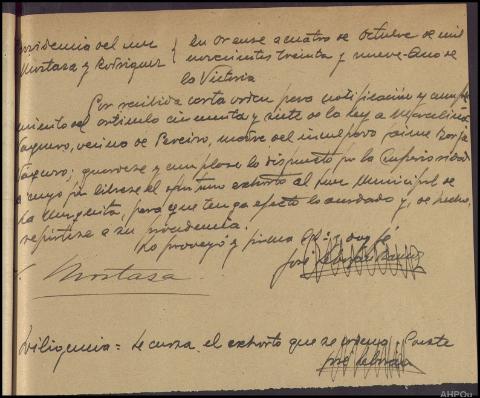 Providencia del Juez En Orense a cuatro de Octubre de mil
Mostaza y Rodriguez novecientos treinta y nueve-Año de
la Victoria
Por recibida carta orden para notificación y cumpli
miento del artículo cincuenta y siete de la ley a Marcelina
Vaquero, vecina de Pereiro, madre del inculpado Jaime Borja
Vaquero; guardese y cumplase lo dispuesto por la Superioridad
a cuyo fin librese el oportuno exhorto al Juez Municipal de
La Mezquita, para que tenga efecto lo acordado y, de hecho,
repórtese a su procedencia.
Lo proveyó y firma SSª; doy fé
José
Mostaza
Diligencia = Se cursa el exhorto que se ordena
José
AHPOu